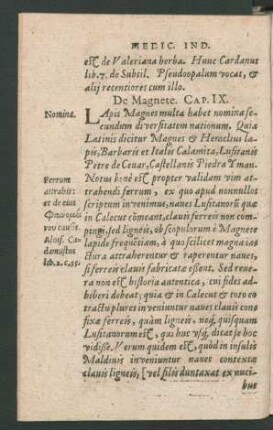 MEDIC. IND.
est de Valeriana herba. Hunc Cardanus
lib. 7. de Subtil. Pseudoopalum vocat, &
alij recentiores cum illo.
De Magnete. CAP. IX.
Nomina.
LApis Magnes multa habet nomina se-
cundum diversitatem nationum. Quia
Latinis dicitur Magnes & Heraclius la-
pis, Barbaris et Italis Calamita, Lusitanis
Petre de Cevar, Castellanis Piedra Yman.
Ferrum
attrahit:
et de eius
vi
Aloys. Ca-
damustus
lib. 2. c. 35.
Notus bonè est propter validam vim at-
trahendi ferrum, ex quo apud nonnullos
scriptum invenimus, naves Lusitanorũ quæ
in Calecut cõmeant, clavis ferreis non com-
pingi, sed ligneis, ob scopulorum è Magnete
lapide frequẽtiam, à quo scilicet magna ia-
ctura attraherentur & raperentur naves,
si ferreis clavis fabricatæ essent. Sed reve-
ra non est historia autentica, cui fides ad-
hiberi debeat; quia & in Calecut & toto eo
tractu plures inveniuntur naves clavis con-
fixæ ferreis, quàm ligneis, neq́; quisquam
Lusitanorum est, qui huc usq́; dicat se hoc
vidisse. Verum quidem est, quòd in insulis
Maldivis inveniuntur naves contextæ
clavis ligneis, [vel filis duntaxat ex nuci-
bus